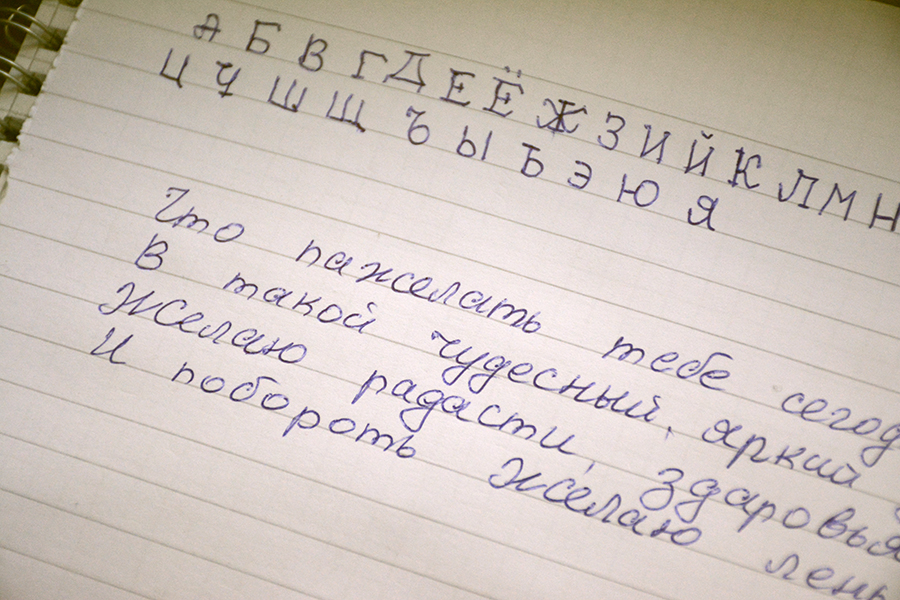 А Б В Г Д Е Ё Ж З И Й К Л М Н
Ц Ч Ш Щ Ъ Ы Ь Э Ю Я
Что пажелать тебе сегод
В такой чудесный, яркий
Желаю радасти, здаровья
И побороть желаю лень